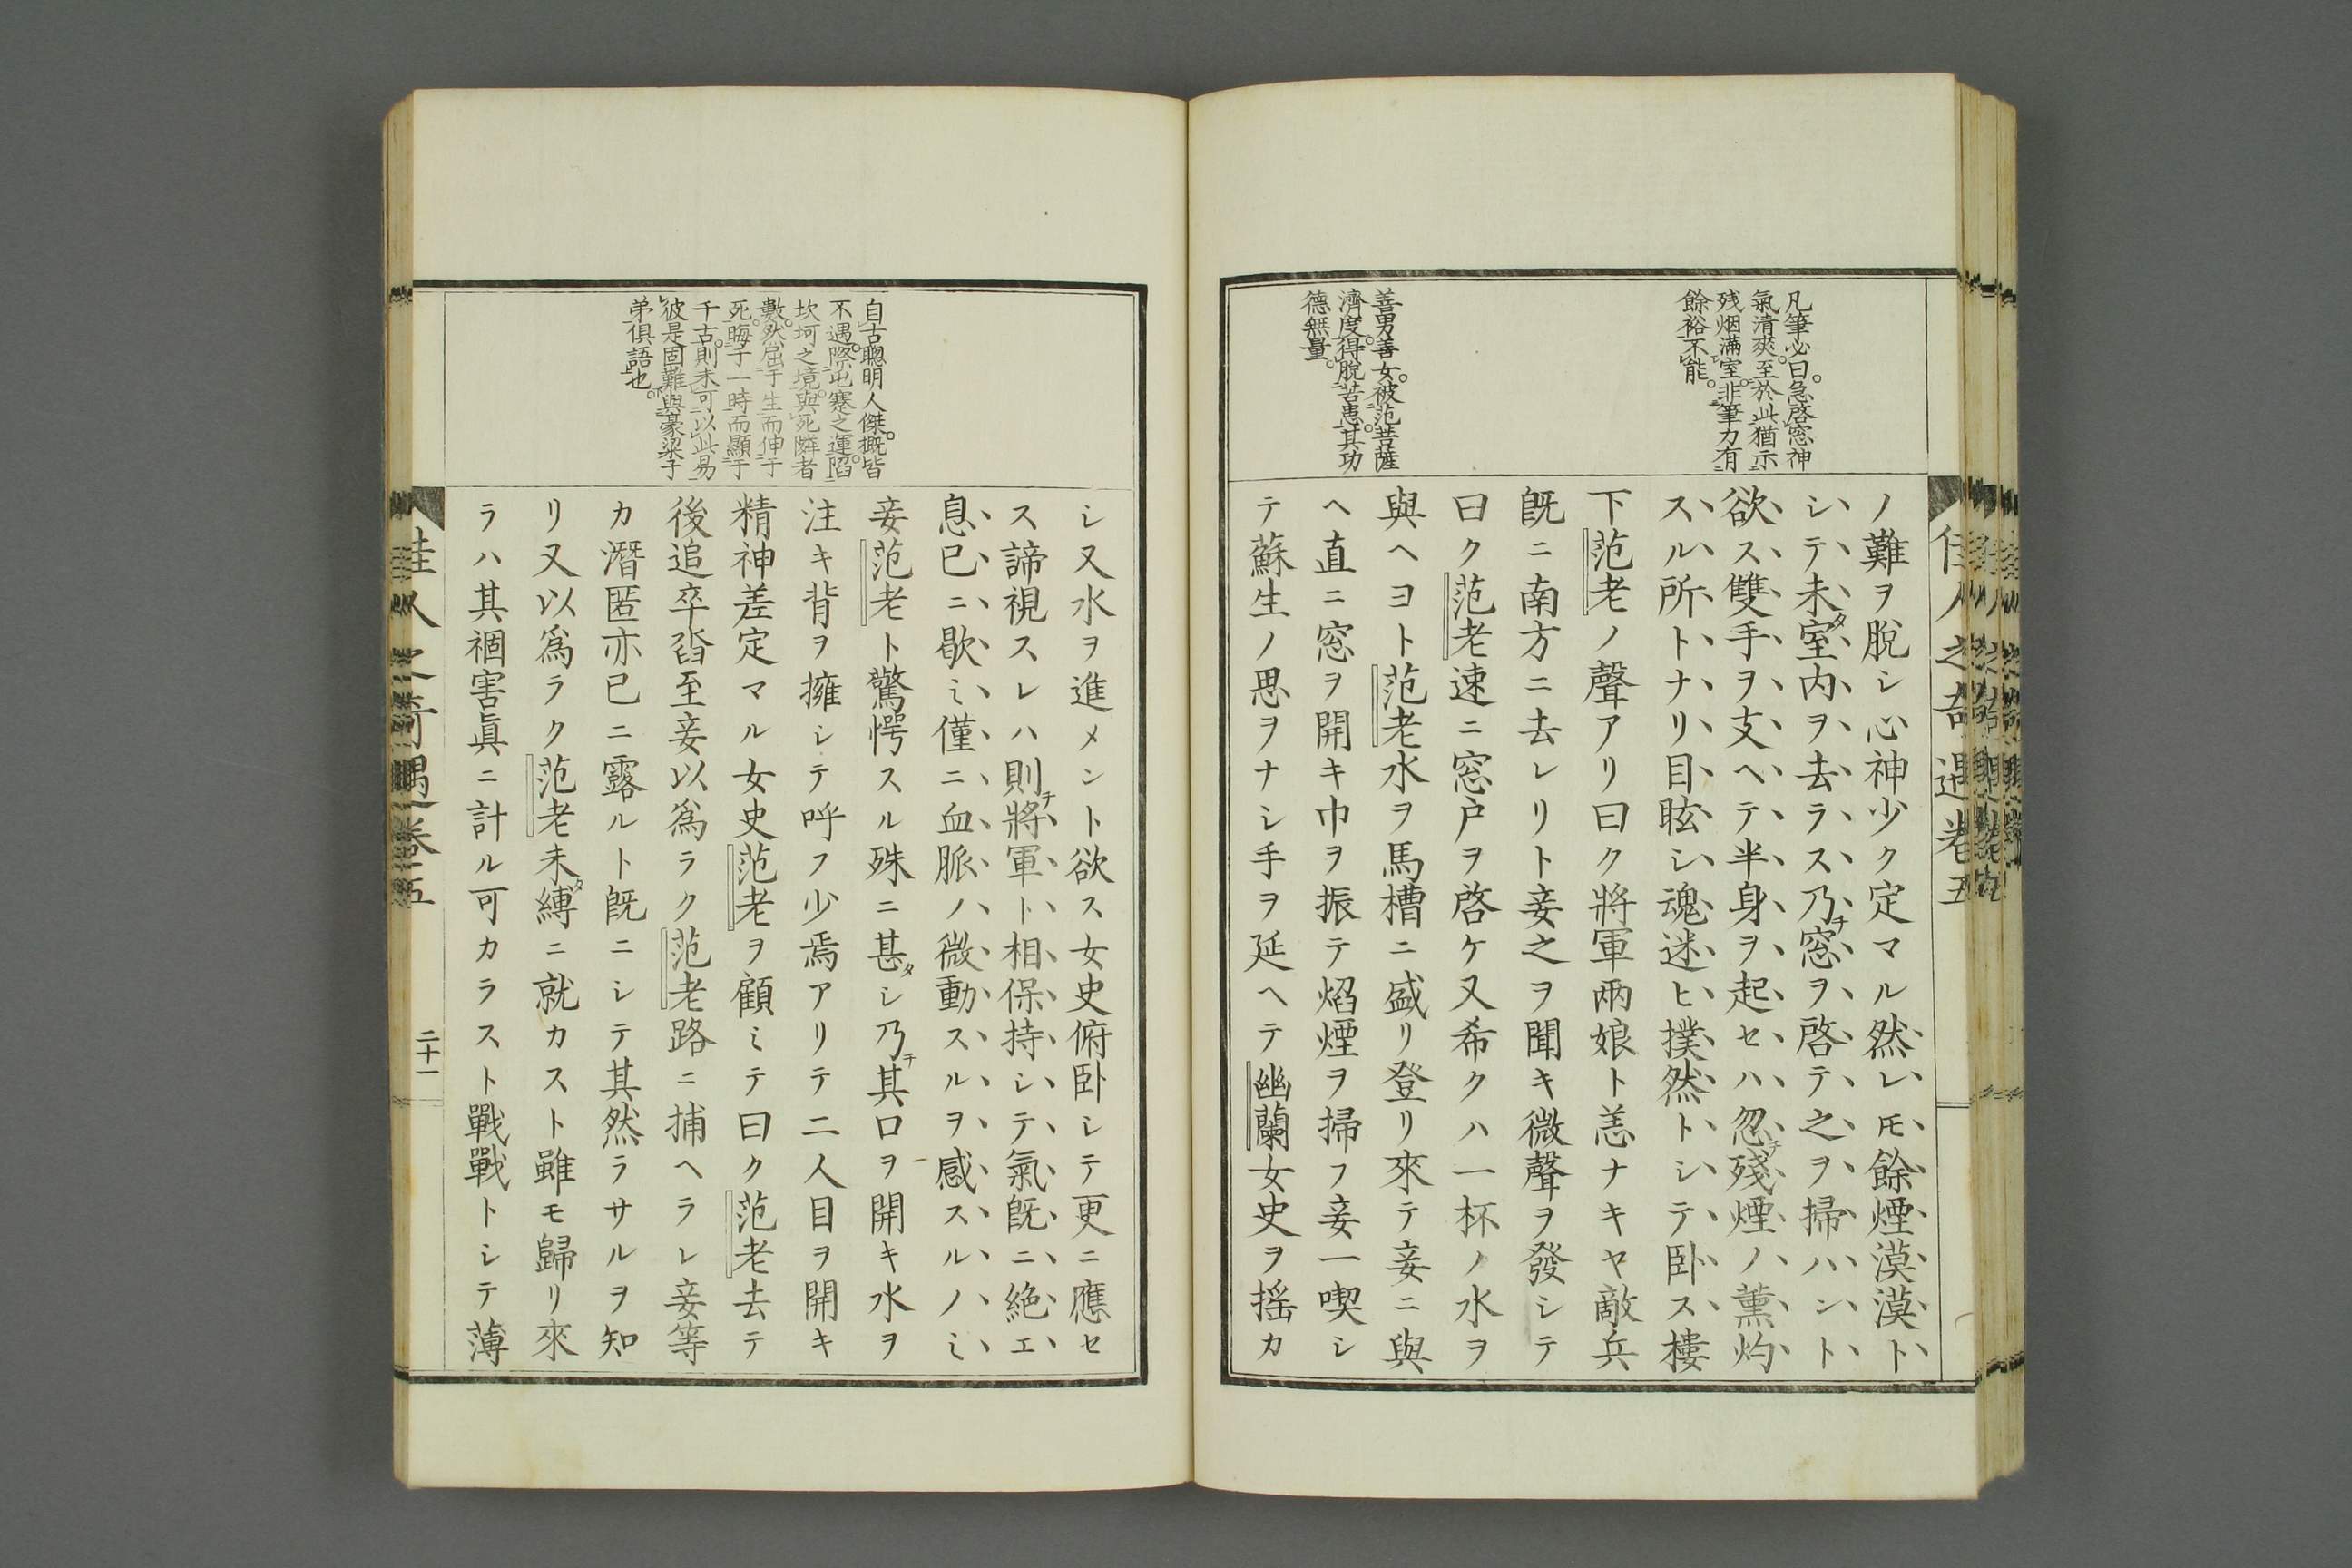 佳人之奇遇卷五
凡筆必曰急啓窓神
氣清爽至於此猶示
残烟滿室非筆力有
餘裕不能
善男善女被范菩薩
濟度得脫苦患其功
德無量
ノ難ヲ脫シ心神少ク定マル然レモ餘煙漠漠ト
シテ未タ室内ヲ去ラス乃チ窓ヲ啓テ之ヲ掃ハント
欲ス雙手ヲ支ヘテ半身ヲ起セハ忽チ殘煙ノ薰灼
スル所トナリ目眩シ魂迷ヒ撲然トシテ卧ス樓
下范老ノ聲アリ曰ク將軍兩娘ト恙ナキヤ敵兵
旣ニ南方ニ去レリト妾之ヲ聞キ微聲ヲ發シテ
曰ク范老速ニ窓戸ヲ啓ケ又希クハ一杯ノ水ヲ
與ヘヨト范老水ヲ馬槽ニ盛リ登リ來テ妾ニ與
ヘ直ニ窓ヲ開キ巾ヲ振テ焰煙ヲ掃フ妾一喫シ
テ蘇生ノ思ヲナシ手ヲ延ヘテ幽蘭女史ヲ搖カ
自古聰明人傑概皆
不遇際屯蹇之運陷
坎坷之境與死隣者
數然屈于生而伸于
死晦于一時而顯于
千古則未可以此易
彼是固難與豪梁子
弟俱語也
シ又水ヲ進メント欲ス女史俯卧シテ更ニ應セ
ス諦視スレハ則チ將軍ト相保持シテ氣旣ニ絶エ
息已ニ歇ミ僅ニ血脈ノ微動スルヲ感スルノミ
妾范老ト驚愕スル殊ニ甚タシ乃チ其口ヲ開キ水ヲ
注キ背ヲ擁シテ呼フ少焉アリテ二人目ヲ開キ
精神差定マル女史范老ヲ顧ミテ曰ク范老去テ
後追卒沓至妾以爲ラク范老路ニ捕ヘラレ妾等
カ潛匿亦已ニ露ルト旣ニシテ其然ラサルヲ知
リ又以爲ラク范老未タ縛ニ就カスト雖モ歸リ來
ラハ其禍害眞ニ計ル可カラスト戰戰トシテ薄
佳人之奇遇卷五
二十一